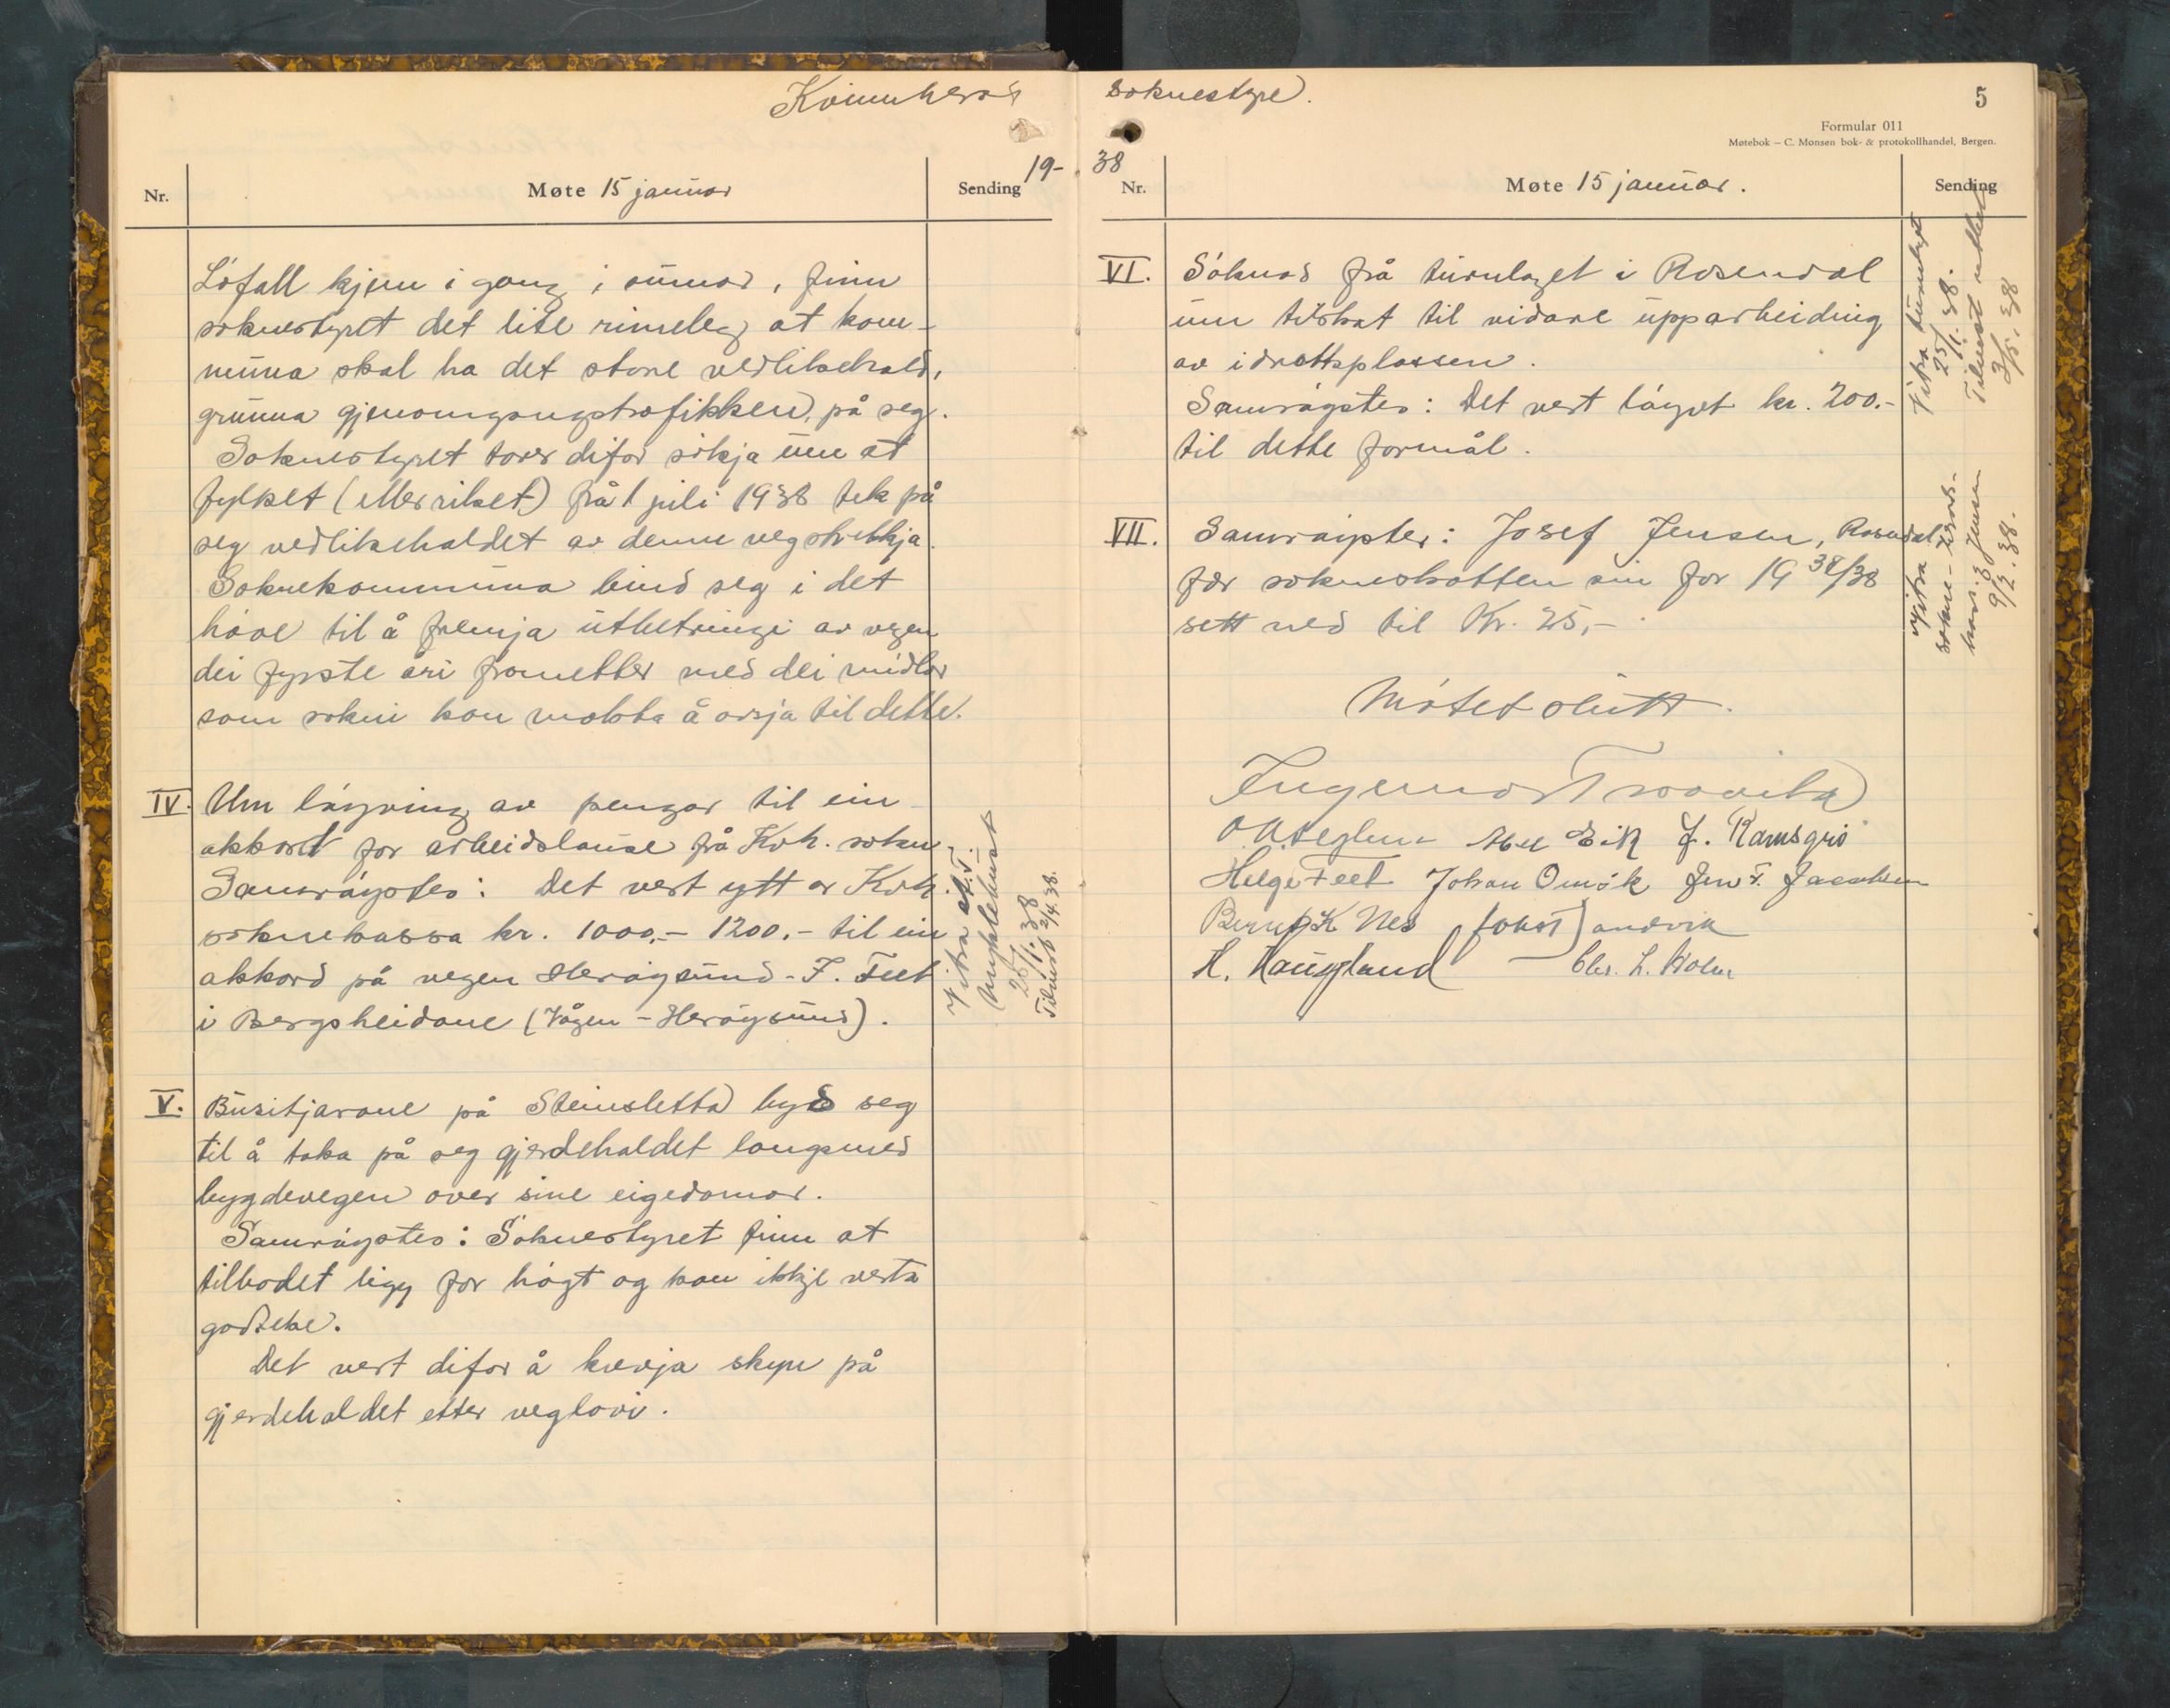 Kvinnherad
19-
Nr.
Møte 15 januar
Sending
Løfall kjem i gang i sumar, finn
soknestyret det lite rimeleg at kom-
muna skal ha det store vedlikehald,
grunna gjenomgangstrafikken, på seg.
Soknestyret torer difor søkja um at
fylket (eller riket) frå 1 juli 1938 tek på
seg vedlikehaldet av denne vegstrekkja.
Soknekommuna bind seg i det
høve til å fremja utbetringi av vegen
dei fyrste åri frametter med dei midlar
som sokni kan makta å avsja til dette.
IV. Um løyving av pengar til ein
akkord for arbeidslause frå Kvh. sokn.
Samrøystes: Det vert ytt av Kvh.
soknekassa kr. 1000,- 1200.- til ein
akkord på vegen Herøysund - F. Feet
i Bergsheidane (Vågen - Herøysund).
Vitra A.T.
25/1. 38
Tilmest 2/4. 38.
V. Busitjarane på Steinsletta byd seg
til å taka på seg gjerdehaldet langsmed
bygdevegen over sine eigedomar.
Samrøystes: Soknestyret finn at
tilbodet ligg for høgt og kan ikkje verta
godteke.
Det vert difor å krevja skyn på
gjerdehaldet etter veglovi.
soknestyre.
5
Formular 011
Møtebok – C. Monsen bok- & protokollhandel, Bergen.
38
Nr.
Møte 15 januar.
Sending
VI. Søknad frå turnlaget i Rosendal
um tilskot til vidare upparbeiding
av idrottsplassen.
Samrøystes: Det vert løyvt kr. 200.-
til dette formål.
Vitra turnlaget
25/1. 38.
Tilmest
3/5. 38
VII. Samrøystes: Josef Jensen, Rosendal
fær sokneskatten sin for 1937/38
sett ned til Kr. 25,-
vitra
sokne-
9/2. 38.
Møtet slutt.
Ingemar Traavik
Abel Eik J. Ramsgrø
Helge Feet Johan Omvik Jens T. Jacobsen
Bernt K Nes Johst Sandvik
H. Haugland Chr. L. Holm